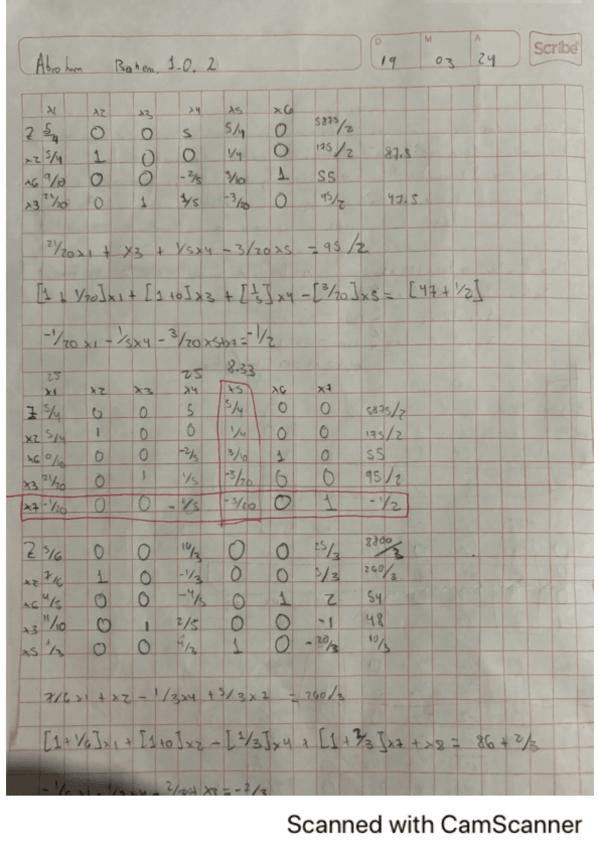 D M A
Scribe
Abraham 1.0.2 19 03 24
x1 x2 x3 x4 x5 x6
Z 5/4 0 0 5 5/4 0 5875/2
x2 5/4 1 0 0 1/4 0 175/2 87.5
x6 9/10 0 0 -2/5 3/10 1 55
x3 21/20 0 1 1/5 -3/20 0 95/2 47.5
21/20x1 + x3 + 1/5x4 - 3/20x5 = 95/2
[1 + 1/20]x1 + [1+0]x3 + [1/5]x4 - [3/20]x5 = [47+1/2]
-1/20x1 - 1/5x4 - 3/20x5+x7=-1/2
25 25 8.33
x1 x2 x3 x4 x5 x6 x7
Z 5/4 0 0 5 5/4 0 0 5875/2
x2 5/4 1 0 0 1/4 0 0 175/2
x6 9/10 0 0 -2/5 3/10 1 0 55
x3 21/20 0 1 1/5 -3/20 0 0 95/2
x7 -1/20 0 0 -1/5 -3/20 0 1 -1/2
Z 5/6 0 0 10/3 0 0 25/3 8800/3
x2 7/6 1 0 -1/3 0 0 5/3 260/3
x6 4/5 0 0 -4/5 0 1 2 54
x3 11/10 0 1 2/5 0 0 -1 48
x5 1/3 0 0 4/3 1 0 -20/3 10/3
7/6x1 + x2 - 1/3x4 + 5/3x7 = 260/3
[1+1/6]x1 + [1+0]x2 - [1/3]x4 + [1+2/3]x7 + x8 = 86 + 2/3
= -2/3
Scanned with CamScanner